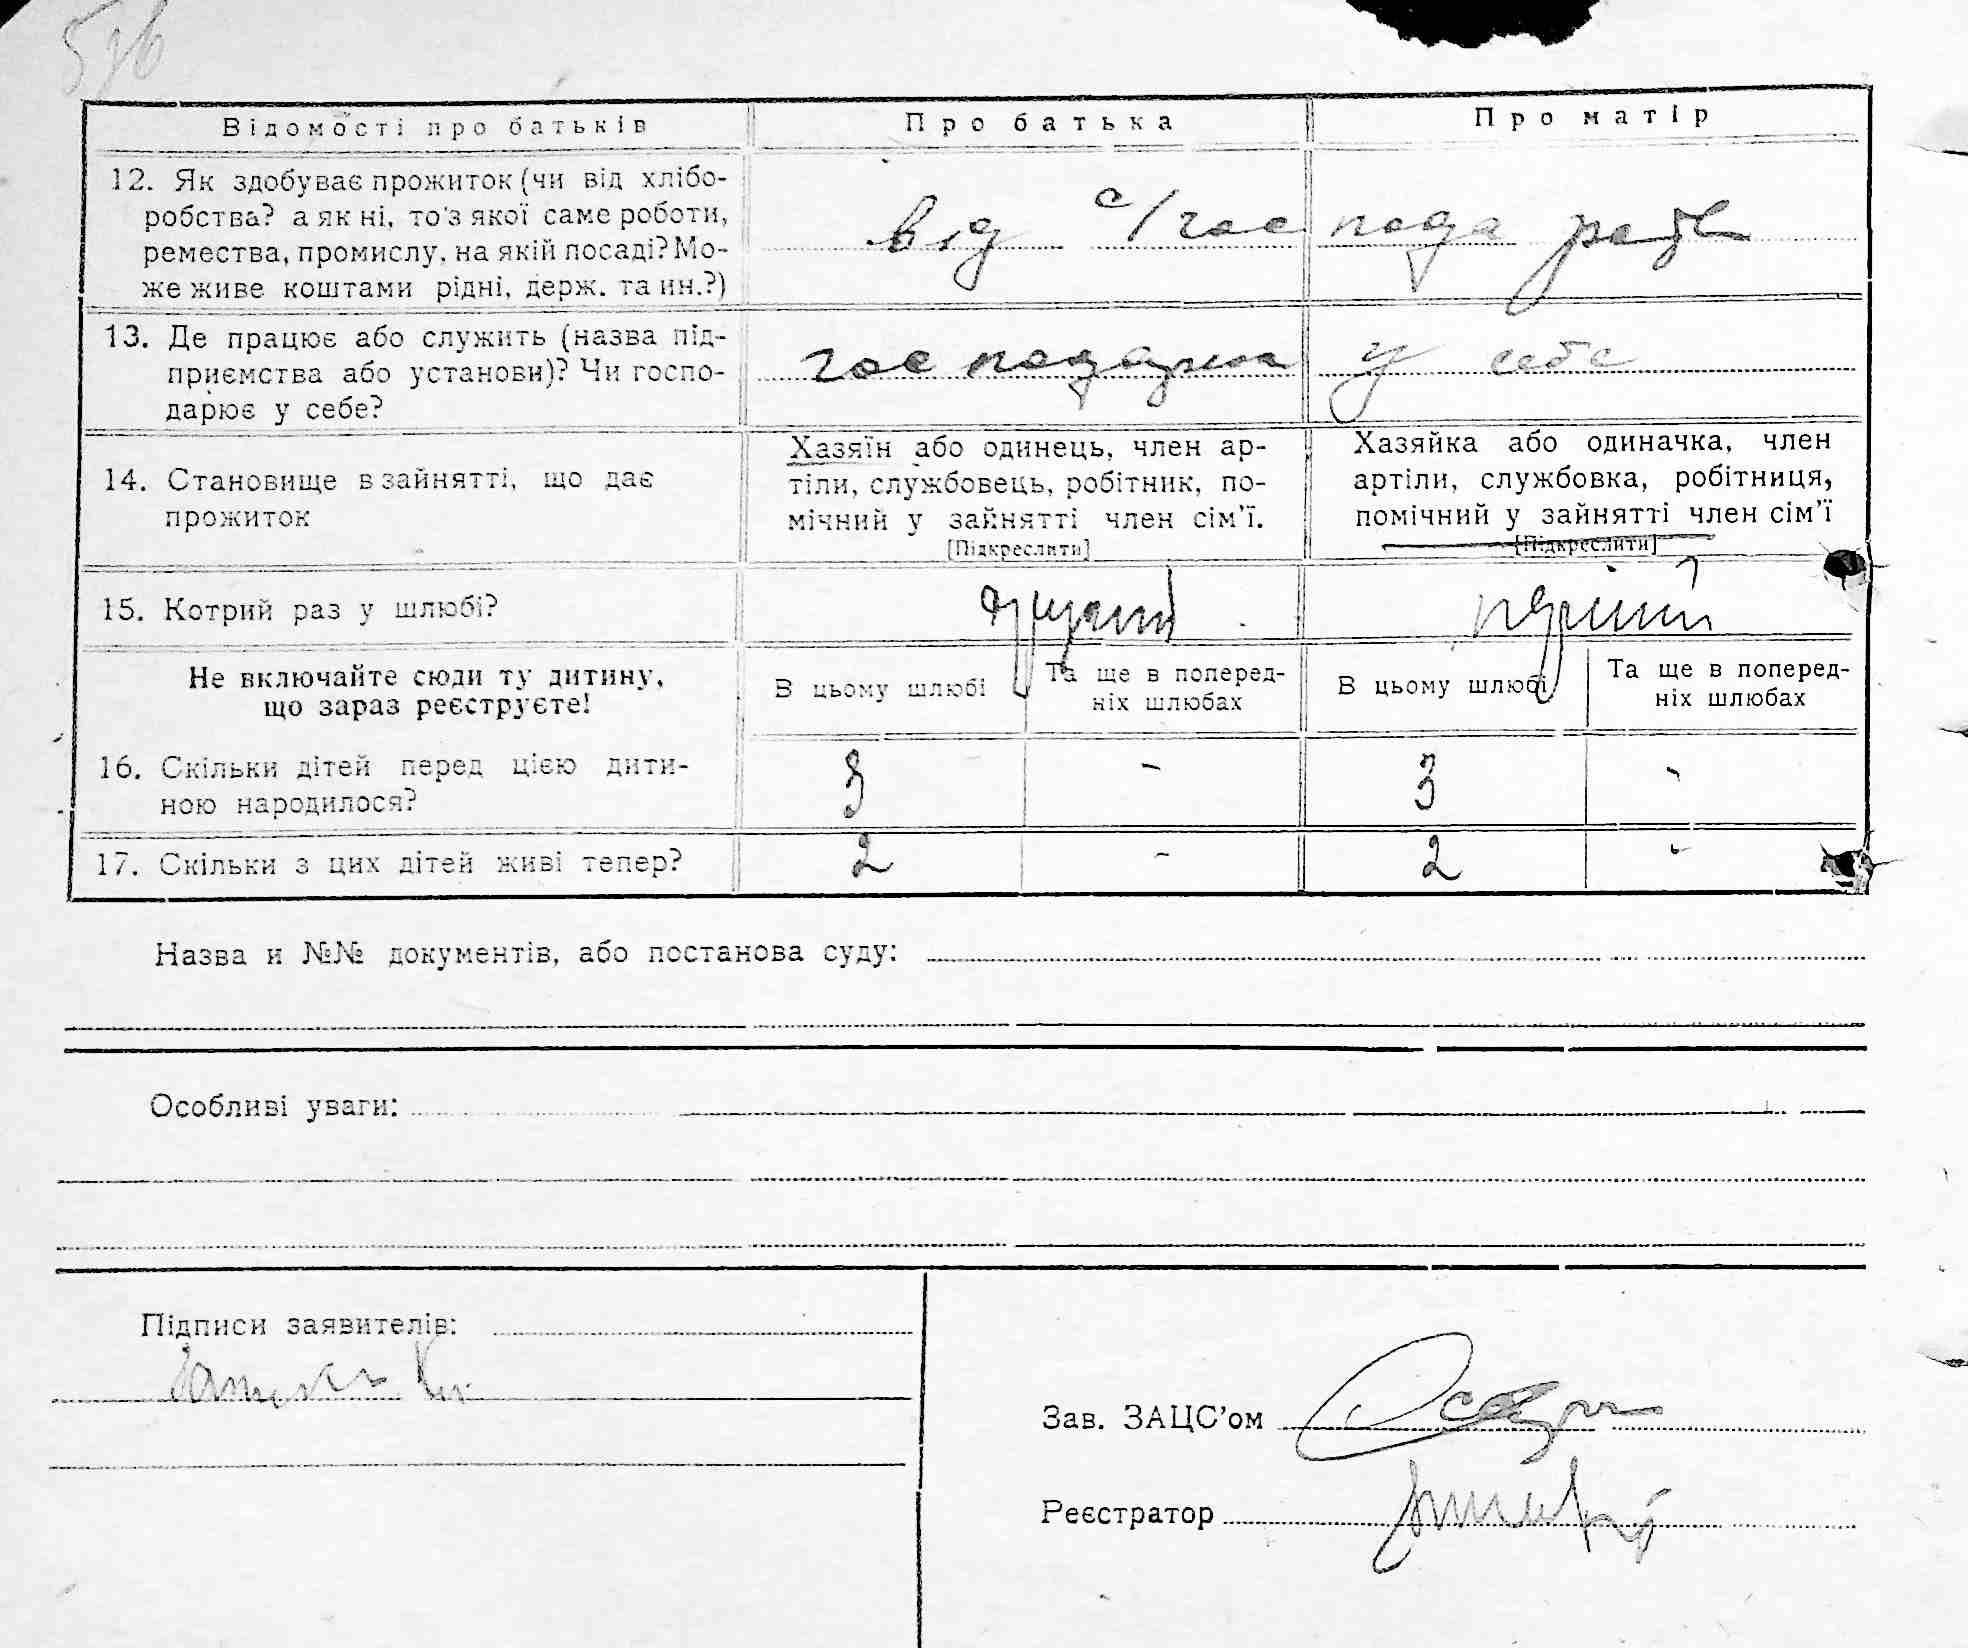 Відомості про батьків
Про батька
Про матір
12. Як здобуває прожиток (чи від хлібо-
робства? а як ні, то з якої саме роботи,
ремества, промислу, на якій посаді? Мо-
же живе коштами рідні, держ. та ин.?)
від с/господарства
13. Де працює або служить (назва під-
приємства або установи)? Чи госпо-
дарює у себе?
господарює у себе
14. Становище в зайнятті, що дає
прожиток
Хазяїн або одинець, член ар-
тіли, службовець, робітник, по-
мічний у зайнятті член сім'ї.
[Підкреслити]
Хазяйка або одиначка, член
артіли, службовка, робітниця,
помічний у зайнятті член сім'ї
[Підкреслити]
15. Котрий раз у шлюбі?
другий
перший
Не включайте сюди ту дитину,
що зараз реєструєте!
В цьому шлюбі
Та ще в поперед-
ніх шлюбах
В цьому шлюбі
Та ще в поперед-
ніх шлюбах
16. Скільки дітей перед цією дити-
ною народилося?
3 - 3 -
17. Скільки з цих дітей живі тепер?
2 - 2 -
Назва и №№ документів, або постанова суду:
Особливі уваги:
Підписи заявителів:
Зав. ЗАЦС'ом
Реєстратор